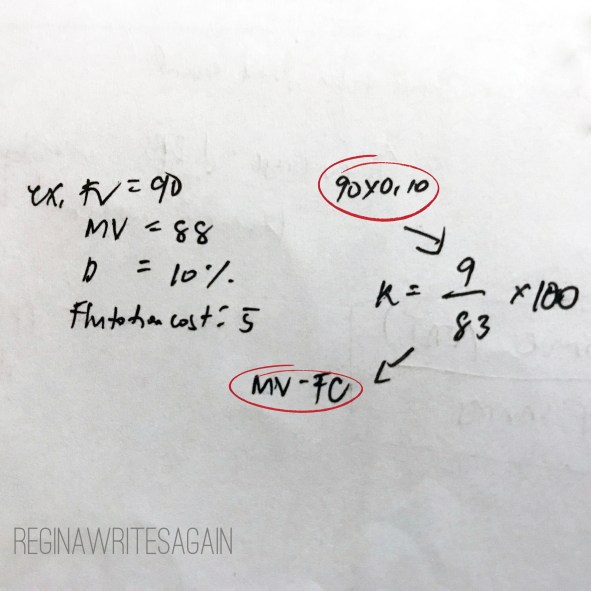 ex, FV = 90
MV = 88
D = 10%.
Flutotion cost: 5
90x0,10
K = 9/83 x100
MV-FC
REGINAWRITESAGAIN